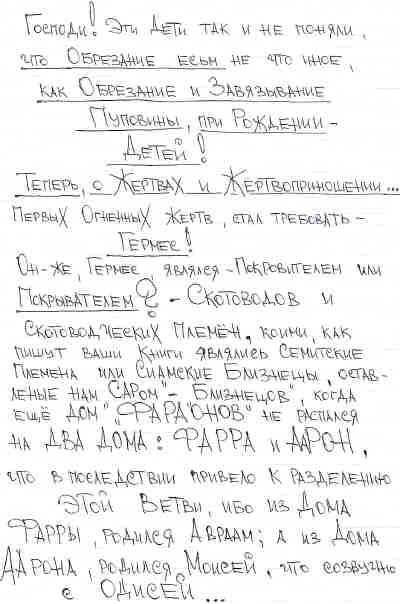 Господи! Эти дети так и не поняли,
что Обрезание есьм не что иное,
как Обрезание и Завязывание
Пуповины, при Рождении-
Детей!
Теперь, о Жертвах и Жертвоприношении...
Первых Огненных жертв, стал требовать-
Гермес!
Он-же, Гермес, являлся-Покровителем или
Покрывателем? - Скотоводов и
Скотоводческих Племён, коими, как
пишут ваши Книги являлись Семитские
Племена или Сиамские Близнецы, остав-
леные нам САРом"-Близнецов", когда
ещё Дом" "ФАРА"ОНОВ" не распался
на ДВА ДОМА: ФАРРА и ААРОН,
что в последствии привело к разделению
этой Ветви, ибо из Дома
Фарры, родился Авраам; а из Дома
Аарона, родился Моисей, что созвучно
с Одисей...